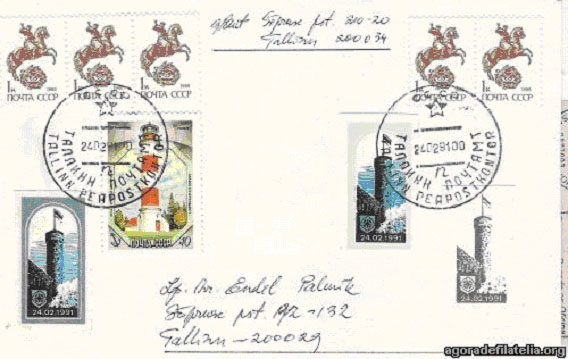 Sõpruse pst. 200-20
Tallinn 200034
1к 1988
ПОЧТА СССР
1к 1988
ПОЧТА СССР
1к 1988
ПОЧТА СССР
1к 1988
ПОЧТА СССР
1к 1988
ПОЧТА СССР
ТАЛЛИНН ПОЧТАМТ
24029100
TALLINN PEAPOSTKONTOR
ТАЛЛИНН ПОЧТАМТ
24029100
TALLINN PEAPOSTKONTOR
ПОЧТА СССР
10
24.02.1991
24.02.1991
24.02.1991
Lp. hr. Endel
Sõpruse pst.
Tallinn-200029
agoradefilatelia.org